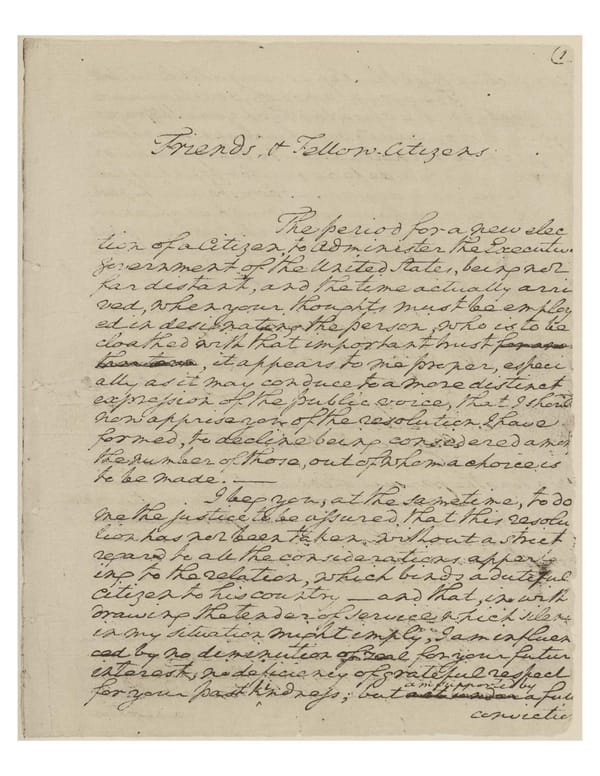 (1
Friends, & Fellow-Citizens
The period for a new elec
tion of a Citizen, to Administer the Executive
government of the United States, being not
far distant, and the time actually arri
ved, when your thoughts must be employ
ed in designating the person, who is to be
cloathed with that important trust for another term
, it appears to me proper, especi
ally as it may conduce to a more distinct
expression of the public voice, that I should
now apprise you of the resolution I have
formed, to decline being considered among
the number of those, out of whom a choice is
to be made. —
I beg you, at the sametime, to do
me the justice to be assured, that this resolu
tion has not been taken, without a strict
regard to all the considerations apper-
ing to the relation, which binds a dutiful
Citizen to his country — and that, in with
drawing the tender of service which silence
in my situation might imply, I am influen
ced by no diminution of zeal for your future
interest, no deficiency of grateful respect
for your past kindness; but am supported by a full
conviction